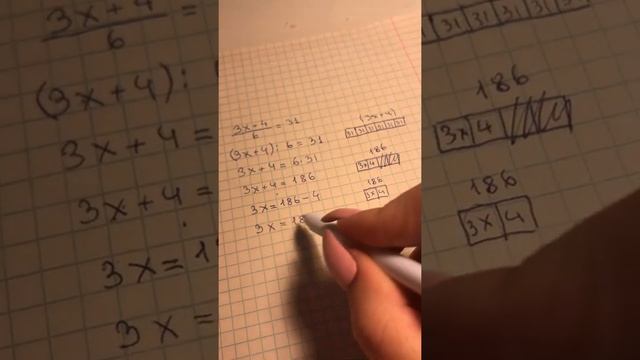 3x+4/6 = 31
(3x+4) : 6 = 31
3x+4 = 6·31
3x+4 = 186
3x = 186 - 4
3x = 18
(3x+4)
31 31 31 31 31 31
186
3x 4
186
3x 4